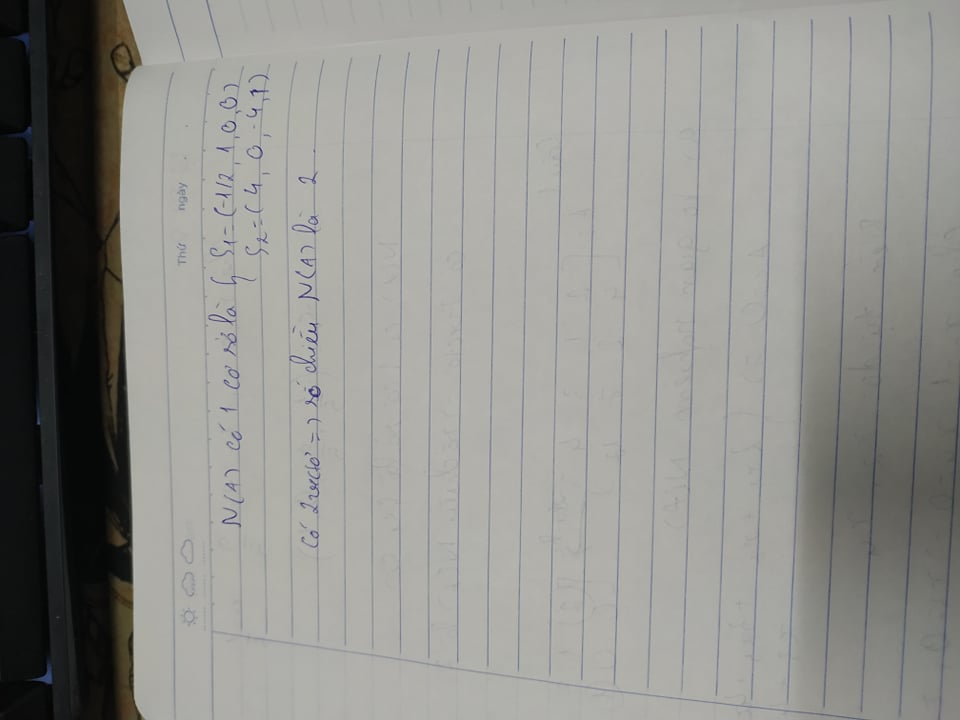 Thứ ngày . .
N(A) có 1 cơ sở là { S1 = (-1/2, 1, 0, 0)
S2 = (4, 0, -4, 1)
Có 2 vectơ => số chiều N(A) là 2.